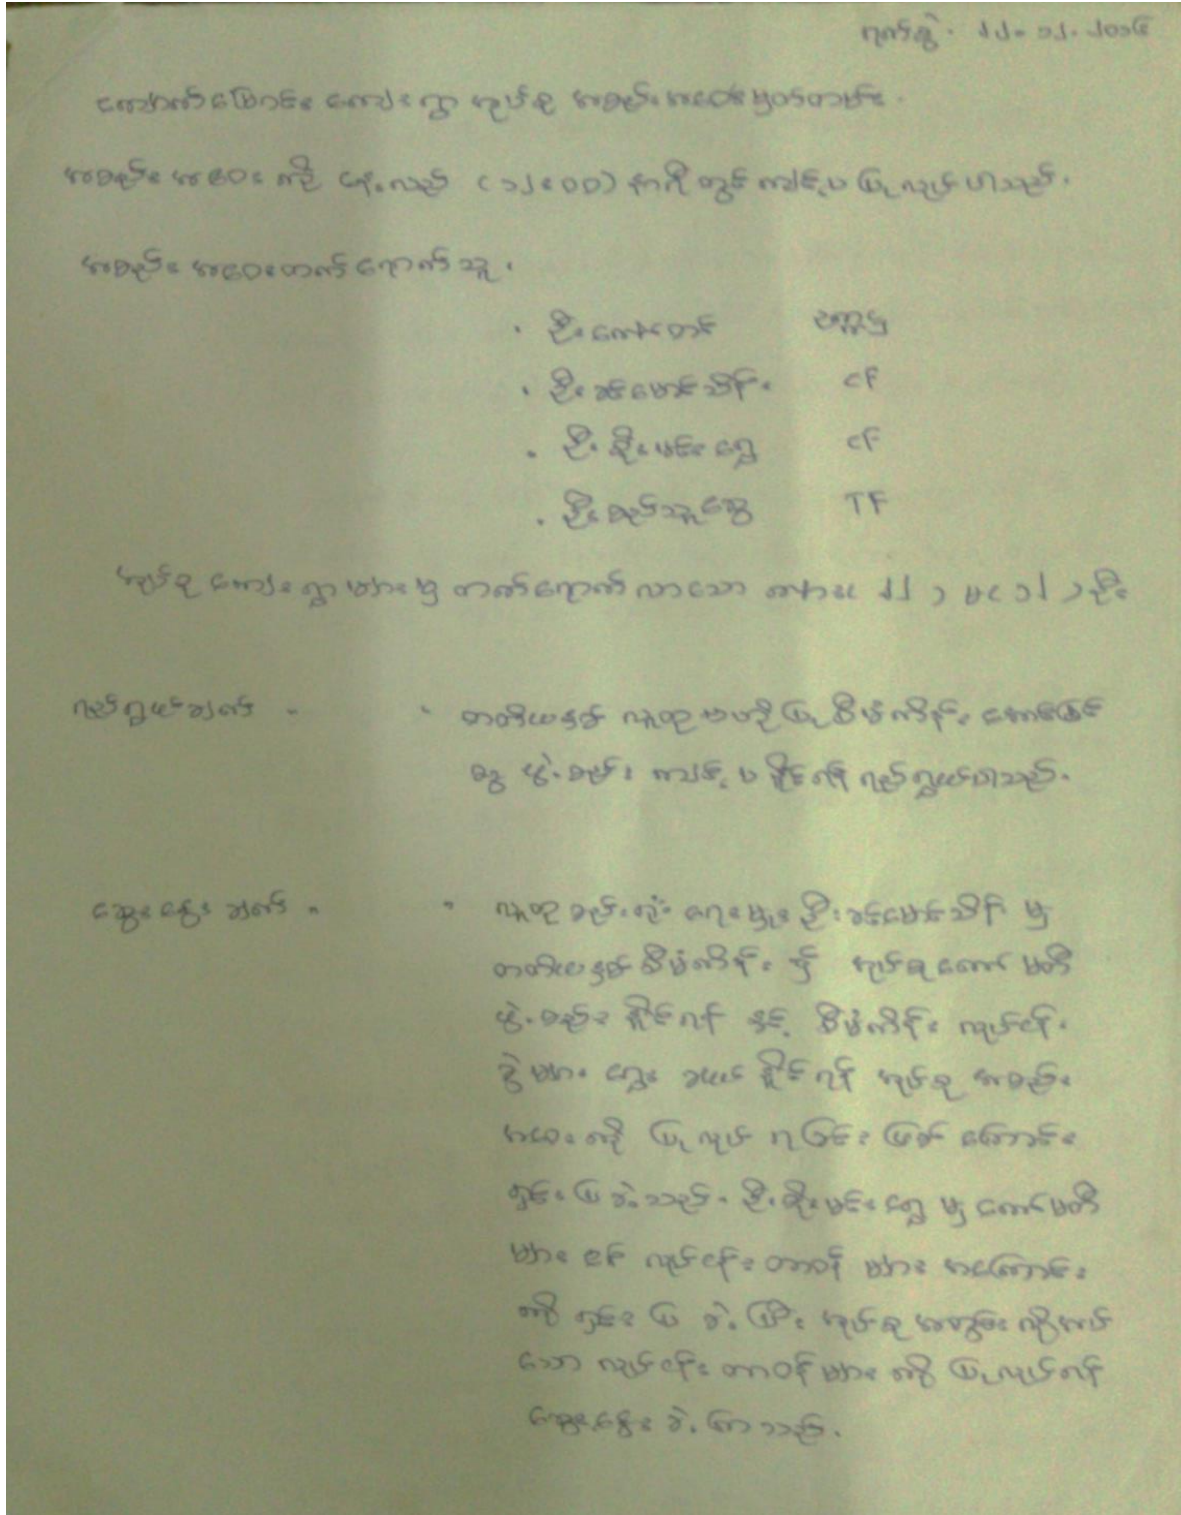 ရက်စွဲ။ ၂၂-၁၂-၂၀၁၆
ကျောက်ပြောင်း ကျေးရွာ အုပ်စု အစည်းအဝေးမှတ်တမ်း။
အစည်းအဝေးကို နေ့လည် (၁၂:၀၀) နာရီတွင် ကျင့်ပ ပြုလုပ်ပါသည်။
အစည်းအဝေးတက်ရောက်သူ။
ဥက္ကဌ
• ဦးခင်မောင်သိန်း CF
• ဦးစိုးမင်းရွှေ CF
• ဦးစည်သူဆွေ TF
အုပ်စု ကျေးရွာများမှ တက်ရောက်လာသော
ရည်ရွယ်ချက် - • တတိယနှစ် လူထုဗဟိုပြုစီမံကိန်း အကောင်အထည်
ဖွဲ့စည်း ကျင့်ပနိုင်ရန် ရည်ရွယ်ပါသည်။
ဆွေးနွေးချက် - • လူထုစည်းရုံးရေးမှူး ဦးခင်မောင်သိန်း မှ
တတိယနှစ် စီမံကိန်း ၌ အုပ်စု ကော်မတီ
ဖွဲ့စည်းနိုင်ရန် နှင့် စီမံကိန်း လုပ်ငန်း
ခွဲများ ရွေးချယ်နိုင်ရန် အုပ်စု အစည်း
အဝေးကို ပြုလုပ်ရခြင်းဖြစ်ကြောင်း
ရှင်းပြခဲ့သည်။ ဦးစိုးမင်းရွှေ မှ ကော်မတီ
များ၏ လုပ်ငန်းတာဝန်များ အကြောင်း
ကို ရှင်းပြခဲ့ပြီး အုပ်စုအတွင်း လိုအပ်
သော လုပ်ငန်းတာဝန်များကို ပြုလုပ်ရန်
ဆွေးနွေးခဲ့ကြသည်။